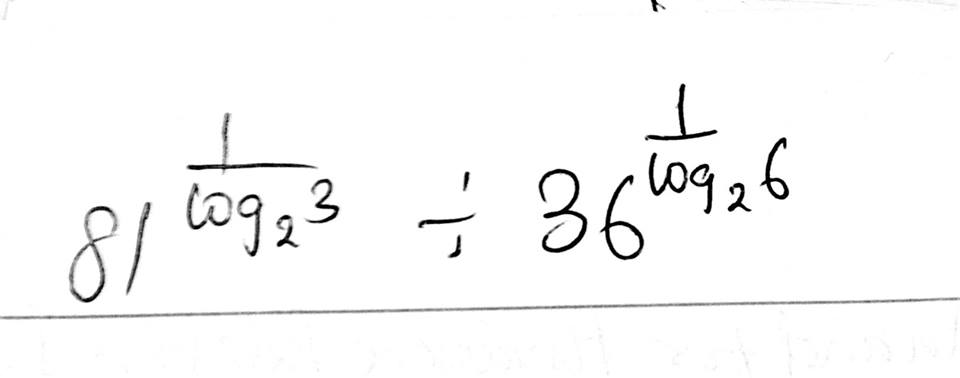 81^{\frac{1}{\log_2 3}} ÷ 36^{\frac{1}{\log_2 6}}